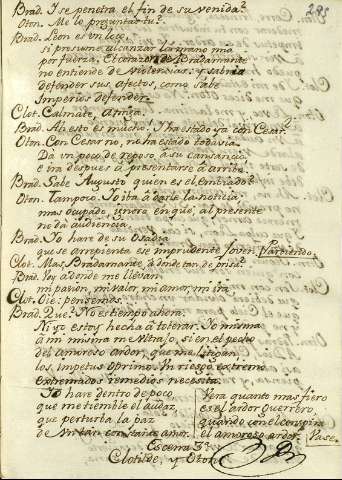 295
Brad. I se penetra el fin de su venida?
Oton. Me lo preguntas tu?
Brad. Leon es un loco,
si presume alcanzar la mano mia
por fuerza. El corazon de Bradamante
no entiende de violencias: y sabria
defender sus afectos, como sabe
Imperios defender.
Clot. Calmate, Amiga.
Brad. Ah esto es mucho! I ha estado ya con Cesar?
Oton. Con Cesar no, no ha estado todavia.
Da un poco de reposo à su cansancio,
e irà despues à presentarse arriba.
Brad. Sabe Augusto quien es el Embiado?
Oton. Tampoco. Yo iba à darle la noticia,
mas ocupado, ignoro en què, al presente
no dà audiencia.
Brad. Yo harè de su osadia
que se arrepienta ese imprudente Joven. Partiendo.
Clot. Mas Bradamante à donde tan de prisa?
Brad. Voy adonde me llevan
mi pasion, mi valor, mi amor, mi ira
Clot. Oie: pensemos.
Brad. Què? No es tiempo ahora:
Ni yo estoy hecha à tolerar. Yo misma
à mi misma me ultrajo, si en el pecho
del amoroso ardor, que me
los impetus oprimo. Un riesgo extremo
extremados remedios necesita.
Yo harè dentro de poco
que me tiemble el audaz,
que perturba la paz
de un tan constante amor.
Verà quanto mas fiero
es el ardor guerrero,
quando con el conspira
el amoroso ardor. Vase.
Escena 3ª
Clotilde, y Oton